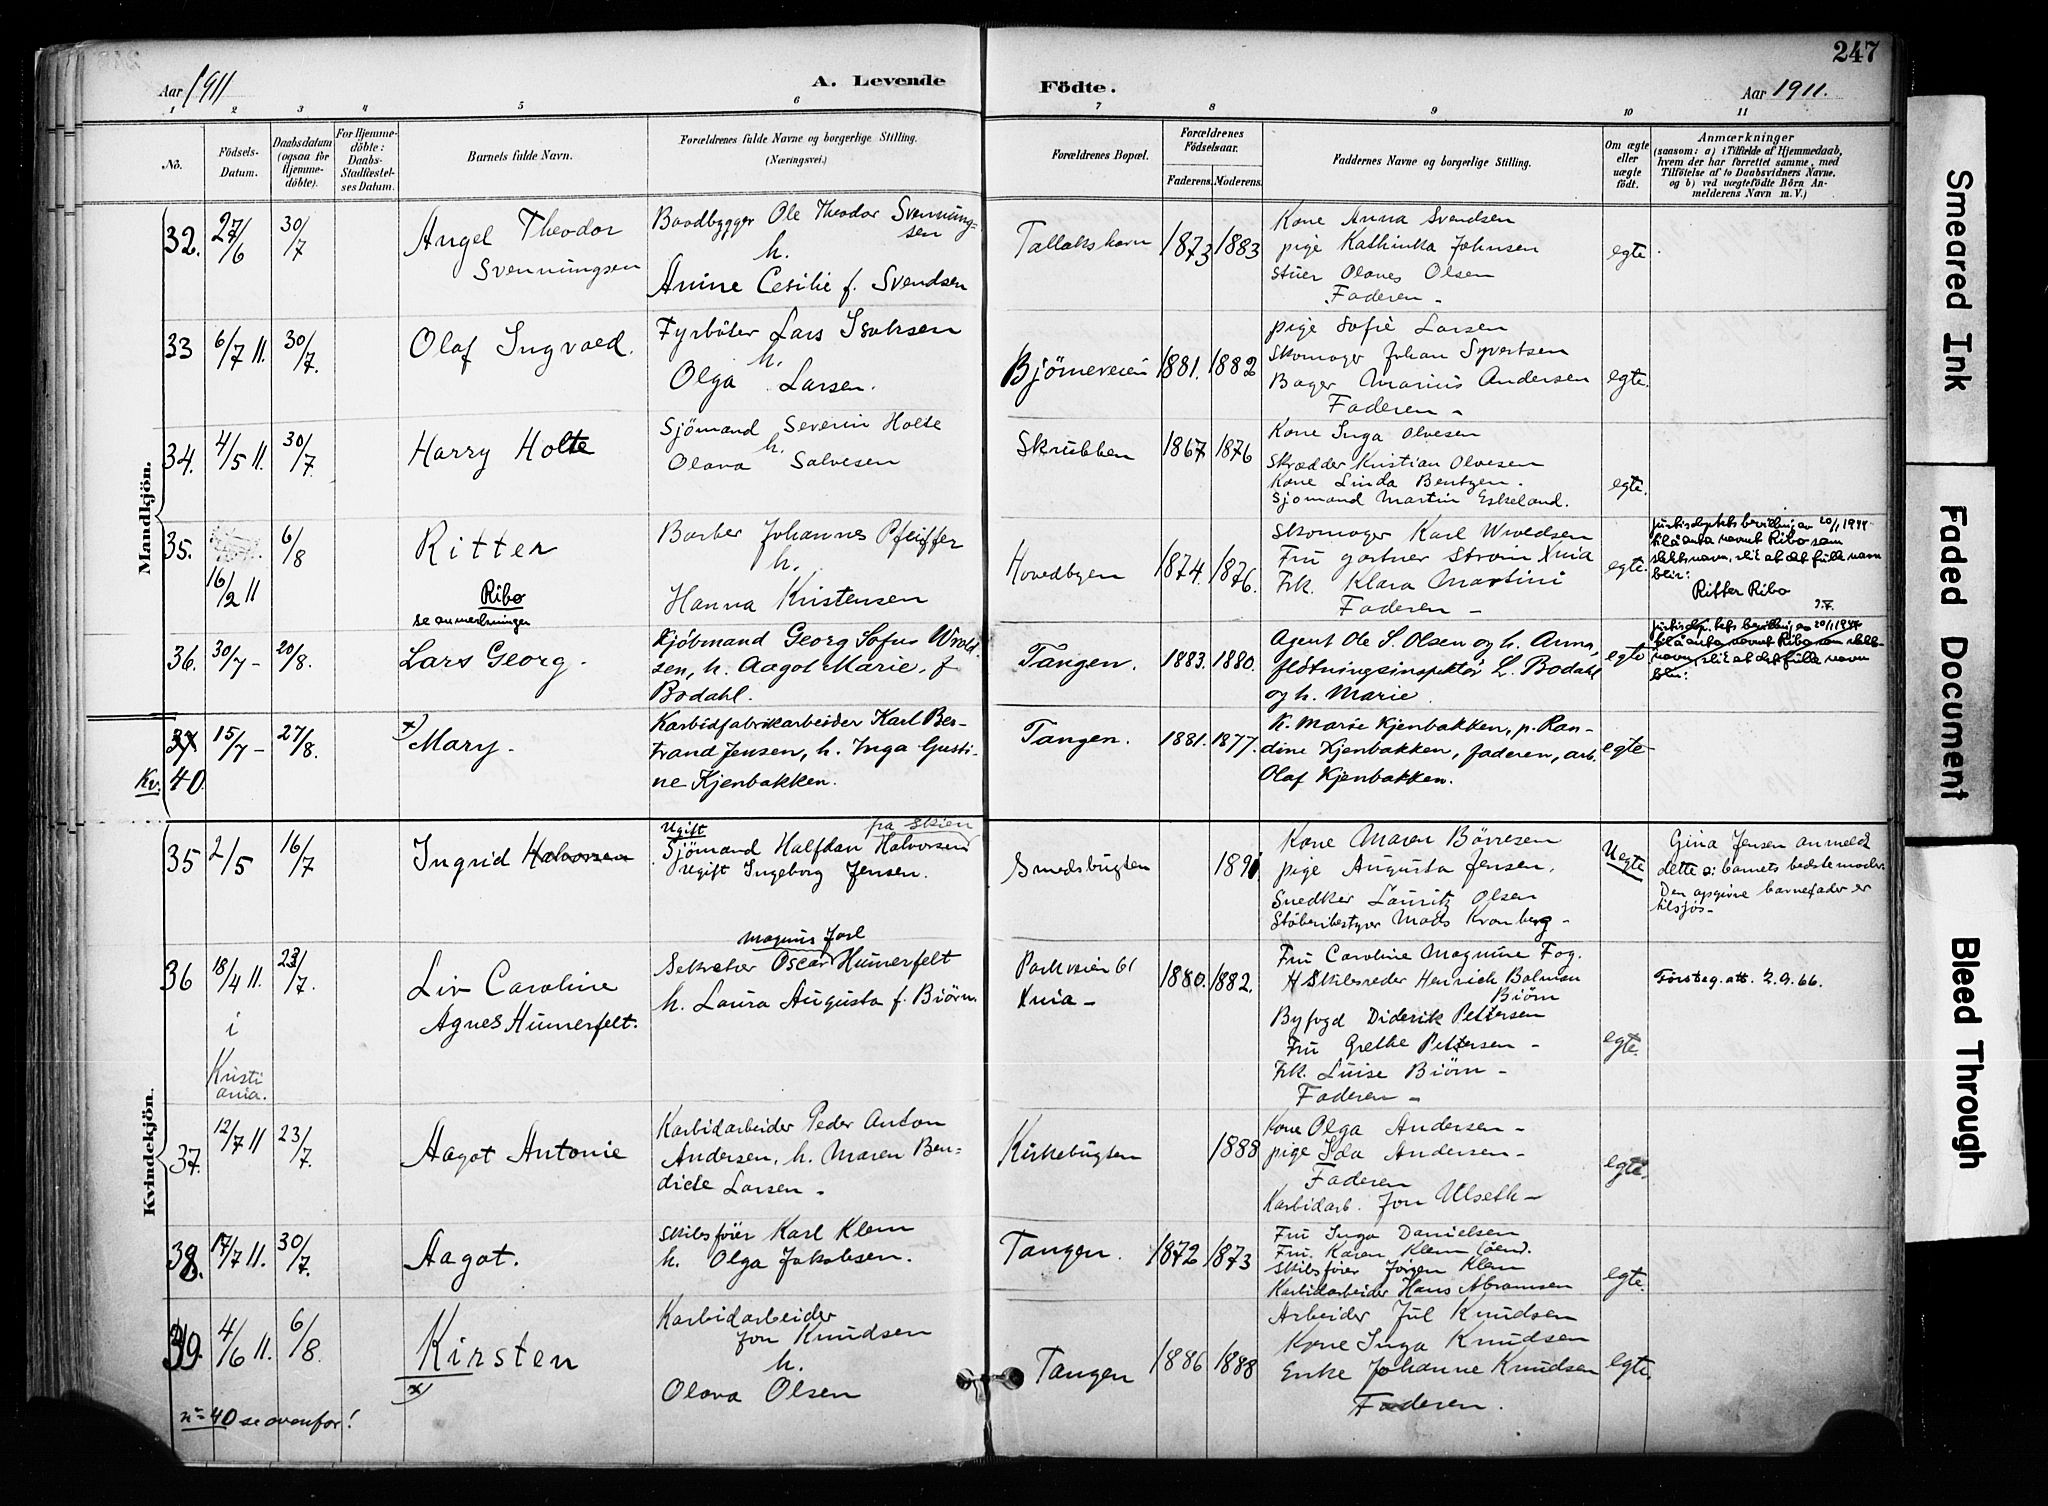 247
Aar 1911
A. Levende
Födte.
Aar 1911.
1 2 3 4 5 6 7 8 9 10 11
No.
Födsels-Datum.
Daabsdatum (ogsaa for Hjemme-döbte).
For Hjemme-döbte: Daabs-Stadfæstel-ses Datum.
Barnets fulde Navn.
Forældrenes fulde Navne og borgerlige Stilling.
(Næringsvei.)
Forældrenes Bopæl.
Forældrenes Födselsaar.
Faderens. Moderens.
Faddernes Navne og borgerlige Stilling.
Om ægte eller uægte födt.
Anmærkninger
(saasom: a) i Tilfælde af Hjemmedaab, hvem der har forrettet samme, med Tilföielse af to Daabsvidners Navne, og b) ved uægtefödte Börn Anmelderens Navn m. V.)
Mandkjön.
32. 27/6 30/7
Angel Theodor
Svennungsen
Baadbygger Ole Theodor Svennung-
sen
h.
Anine Cesilie f. Svendsen
Tallakshavn 1873 1883
Kone Anna Svendsen
pige Kathinka Johnsen
Stuer Olaves Olsen
Faderen -
egte
33 6/7 11. 30/7.
Olaf Ingvald.
Fyrböter Lars Isaksen
h.
Olga Larsen.
Björneveien 1881. 1882
pige Sofie Larsen
Skomager Johan Syvertsen
Bager Marius Andersen
Faderen -
egte.
34. 4/5 11. 30/7
Harry Holte
Sjömand Severin Holte
h.
Olava Salvesen
Skrubben 1867 1876
Kone Inga Olvesen
Skrædder Kristian Olvesen
Kone Linda Bentzen.
Sjömand Martin Eskeland.
egte.
35. 16/2 11 6/8
Ritter
Ribo
se anmerkninger
Barber Johannes Pfeiffer
h.
Hanna Kristensen
Hovedbyen 1874. 1876.
Skomager Karl Wroldsen
Fru gartner Strøm Xnia
Frk. Klara Martini
Faderen -
egte.
justisdeptets bevilling av 20/1 1944
til å anta navnet Ribo som
slektsnavn, slik at det fulle navn
blir:
Ritter Ribo
36. 30/7 - 20/8.
Lars Georg.
Kjöbmand Georg Sofus Wrold-
sen, h. Aagot Marie, f
Bodahl.
Tangen. 1883. 1880.
Agent Ole S. Olsen og h. Anna,
flötningsinspektör L. Bodahl
og h. Marie.
egte
justisdep.tets bevilling av 20/1 1944
til å anta navnet Ribo som slekts-
navn, slik at det fulle navn
blir:
37 15/7 - 27/8.
Kv. 40.
x) Mary.
Karbidfabrikarbeider Karl Ber-
trand Jensen, h. Inga Gusti-
ne Kjenbakken.
Tangen. 1881. 1877.
K. Marie Kjenbakken, p. Ran-
dine Kjenbakken, faderen, arb.
Olaf Kjenbakken.
egte
Kvindekjön.
35 2/5 16/7
Ingrid Halvorsen
Ugift fra Skien
Sjömand Halfdan Halvorsen
Ugift Ingeborg Jensen.
Smedsbugten 1891
Kone Maren Börresen
pige Augusta Jensen.
Snedker Lauritz Olsen
Støberibestyrer Mads Kronberg -
Uegte
Gina Jensen anmeldt
dette o: barnets bedstemoder.
Den opgivne barnefader er
tilsjös -
36 18/4 11. 23/7.
i
Kristi
ania.
Liv Caroline
Agnes Humerfelt.
Magnus Jarl
Sekretær Oscar Humerfelt
h. Laura Augusta f. Biörn.
Parkveien 61
Xnia - 1880. 1882.
Fru Caroline Magnine Fog.
H Skibsreder Henrich Bolman
Biörn
Byfogd Diderik Pettersen
Fru Grethe Pettersen -
Frk. Luise Biörn -
Faderen -
egte.
Försteg. att. 2.9.66.
37. 12/7 11 23/7.
Aagot Antonie
Karbidarbeider Peder Anton
Andersen, h. Maren Ben-
dicte Larsen -
Kirkebugten 1888
Kone Olga Andersen -
pige Ida Andersen -
Faderen
Karbidarb. Jon Ulseth -
egte.
38. 17/7 11. 30/7.
Aagot.
Skibsförer Karl Klem
h. Olga Jakobsen.
Tangen. 1872 1873
Fru Inga Danielsen
Fru. Karen Klem (den).
Skibsförer Jörgen Klem
Karbidarbeider Hans Abramsen
egte.
39. 4/6 11. 6/8.
Kirsten
x)
Karbidarbeider
Jon Knudsen
h.
Olava Olsen
Tangen 1886 1888
Arbeider Jul Knudsen
Kone Inga Knudsen
Enke Johanne Knudsen
Faderen.
egte.
n = 40 se ovenfor!
Smeared Ink
Faded Document
Bleed Through